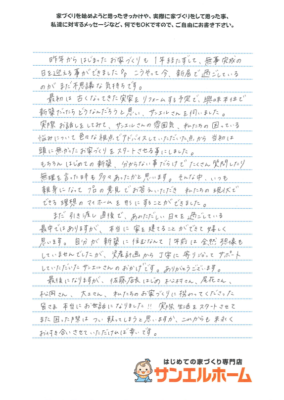 家づくりを始めようと思ったきっかけや、実際に家づくりをして思った事、
私達に対するメッセージなど、何でもOKですので、ご自由にお書き下さい。
昨年からはじまったお家づくりも1年またずして、無事完成の
日を迎える事ができました。こうやって今、新居で過ごしている
のがまだ不思議な気持ちです。
最初は古くなってきた実家をリフォームする予定で、興味本位で
新築だったらどうなんだろうと思い、サンエルさんを伺いました。
実際お話しをしてみて、サンエルさんの雰囲気、私たちの困っている
悩みについて色々な視点でアドバイスしていただいた点から
お家づくりをスタートさせる事にしました。
もちろんはじめての新築、分からない事だらけでたくさん質問したり
無理を言った時も多々あったかと思います。そんな中、いつも
親身になってプロの意見でお答えいただき私たちの現状で
できる理想のマイホームを形にすることができました。
まだ引き渡し直後で、あわただしい日々を過ごしている
最中ではありますが、本当に家を建てることができて嬉しく
思います。自分が新築に住むなんて1年前は全然想像も
していませんでしたが、資産計画から丁寧に寄りそってサポート
していただいたサンエーさんのおかげです。ありがとうございます。
最後になりますが、佐藤店長はじめ
さん、私たちのお家づくりに携わってくださった
皆さま、本当にお世話になりました!! 実際生活をスタートさせて
また困った時は つい頼ってしまうと思いますが、これからも末永く
お付き合いさせていただければ幸いです。
はじめての家づくり専門店
サンエルホーム